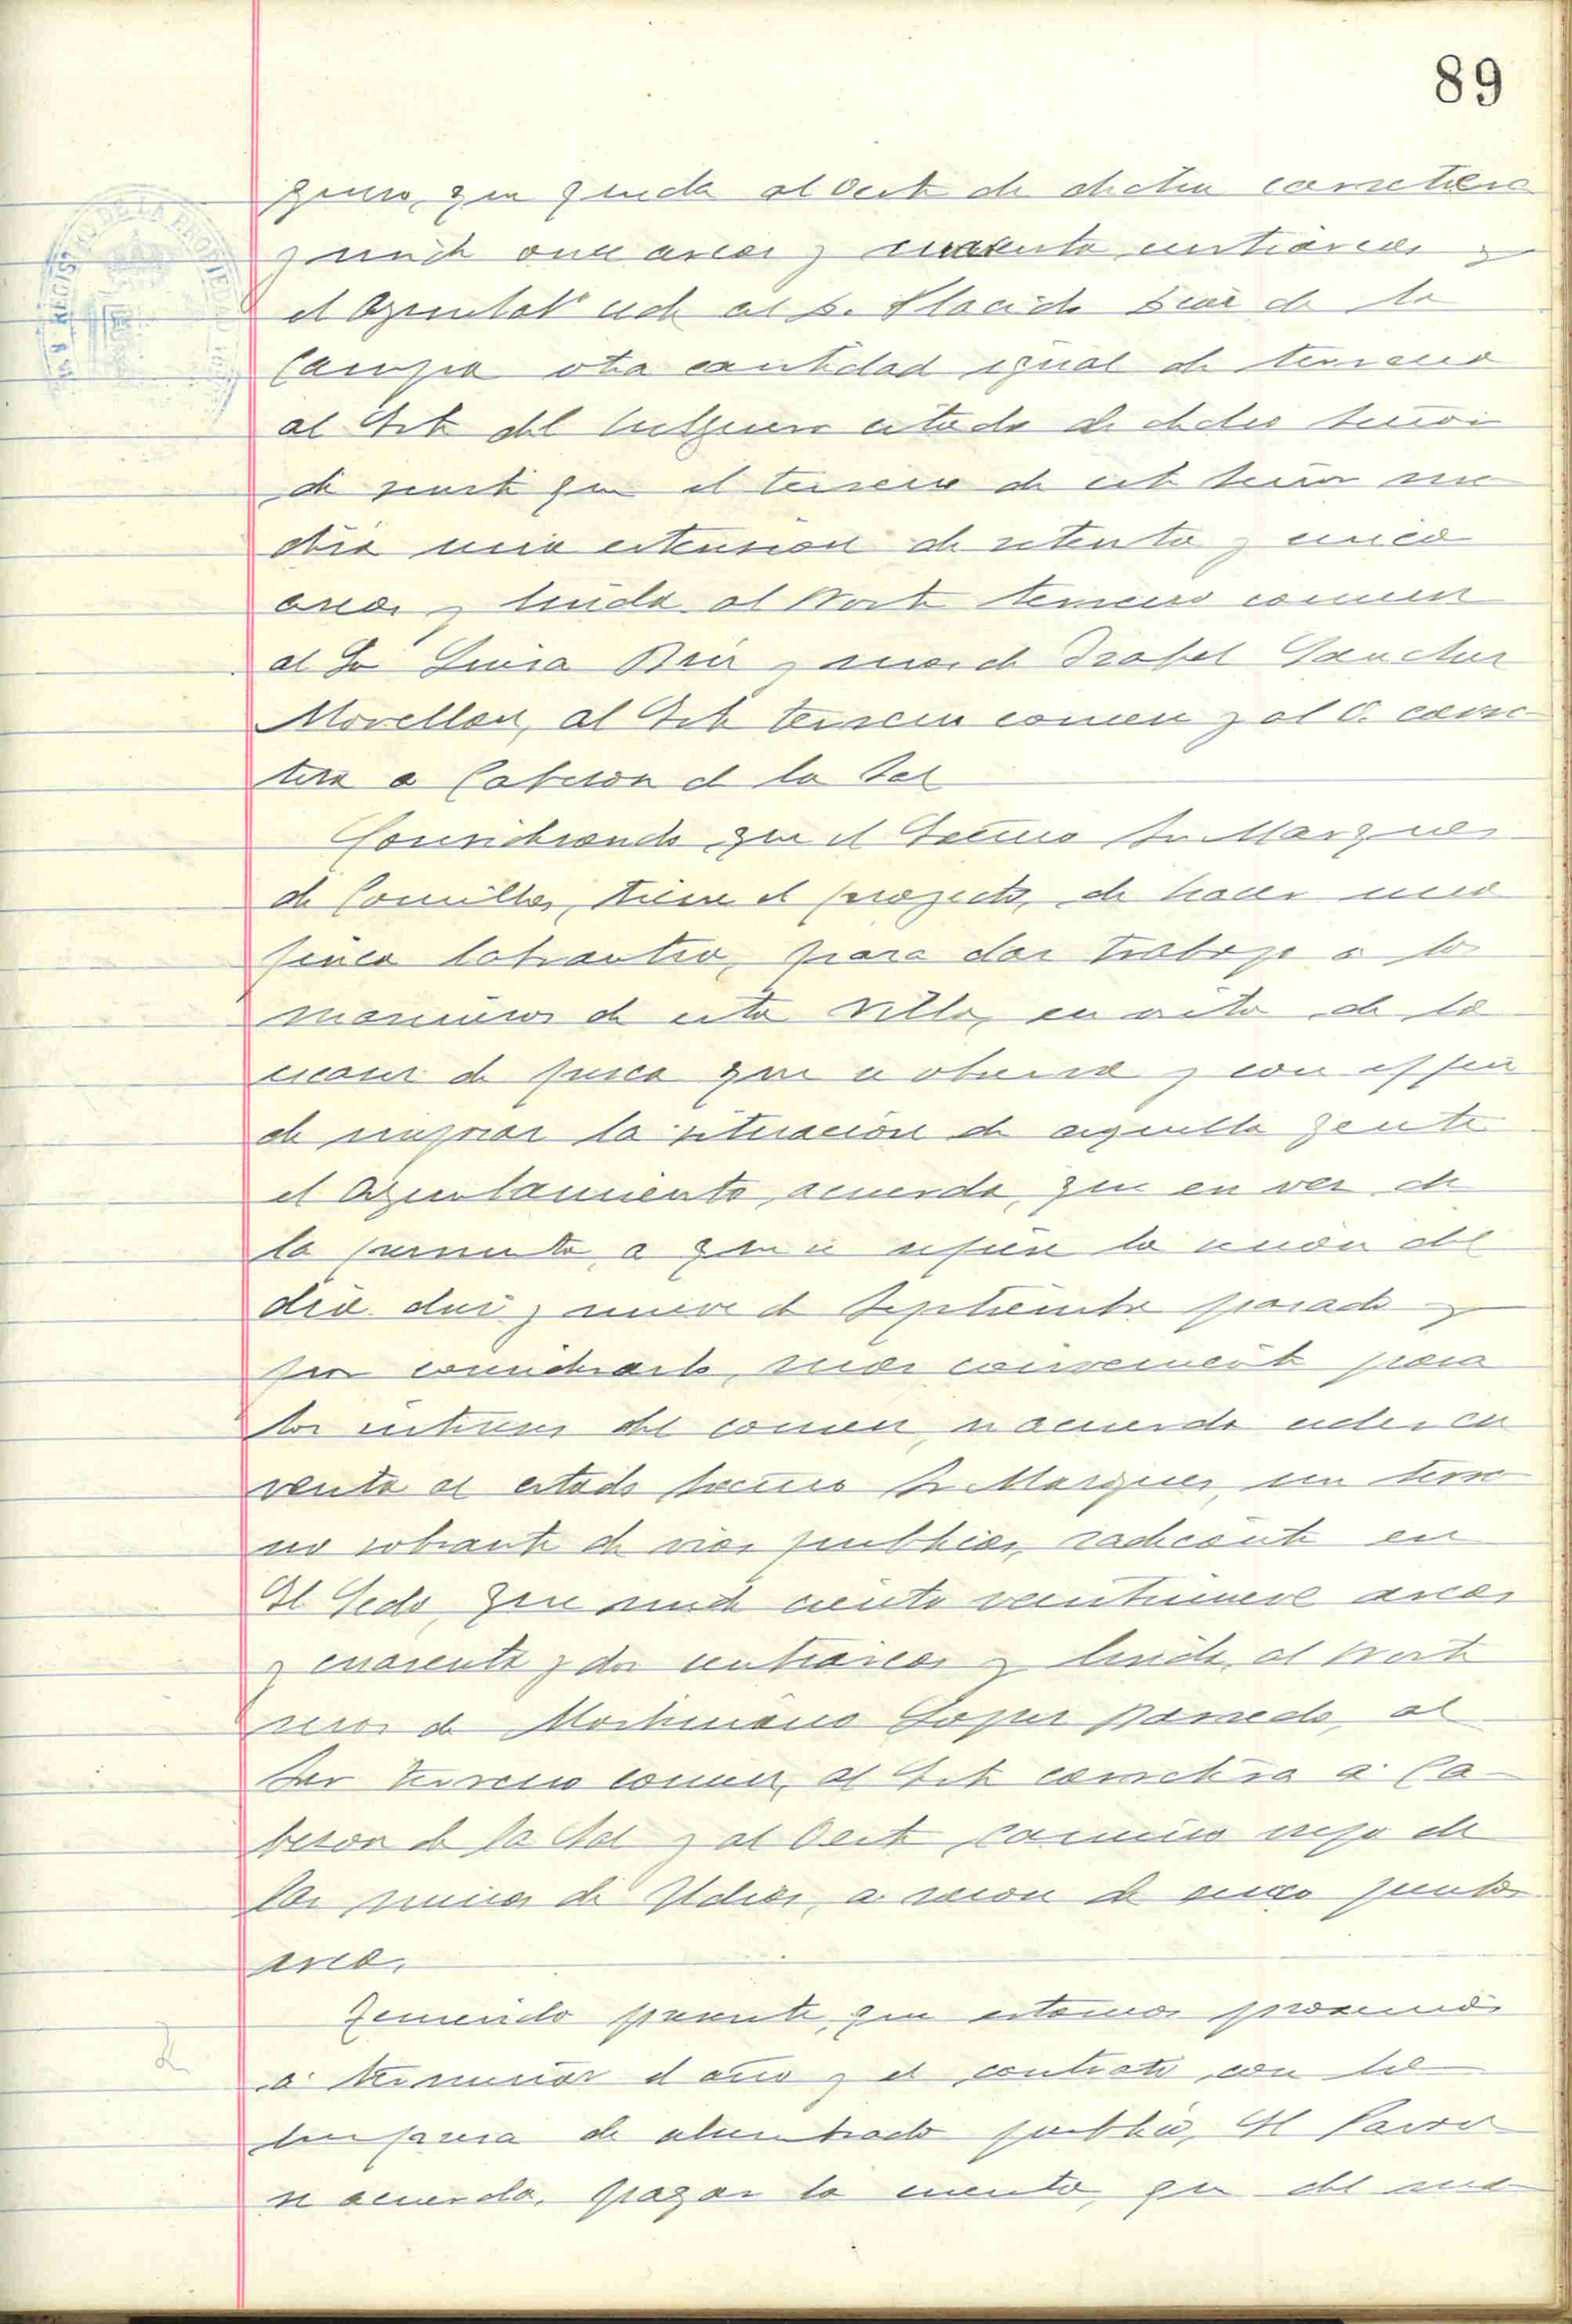 89
REGISTRO DE LA PROPIEDAD
que queda al Oeste de dicha carretera
y mide once areas y cuarenta centiareas y
el Ayuntatº cede al S. Placido de la
Campa otra cantidad igual de terreno
al Este del citado de dicho señor
de suerte que el terreno de este señor me
dirá una estension de setenta y cinco
areas y linda al Norte terreno comun
al Sr Isabel Sanchez
Movellan, al Este terreno comun y al O. carre
tera a Cabezon de la Sal
Considerando que el Excmo Sr Marques
de Comillas, tiene el proyecto, de hacer una
finca labrantia, para dar trabajo a los
marineros de esta villa, en vista de la
escasez de pesca que se observa y con el fin
de mejorar la situación de aquella gente
el Ayuntamiento, acuerda, que en vez de
la permuta, a que se refiere la sesion del
dia diez y nueve de Septiembre pasado y
por considerarlo, mas conveniente para
los intereses del comun, se acuerda ceder en
venta al citado Excmo Sr Marques, un terre
no sobrante de vias publicas, radicante en
El que mide ciento veintinueve areas
y cuarenta y dos centiareas y linda, al Norte
de Maximiano Lopez al
Sur terreno comun, al Este carretera a Ca-
bezon de la Sal y al Oeste, camino viejo de
las minas de Udias, a razon de cinco pesetas
area.
Teniendo presente, que estamos proximos
a terminar el año y el contrato, con la
Empresa de alumbrado publico, El
se acuerda, pagar la cuenta, que del